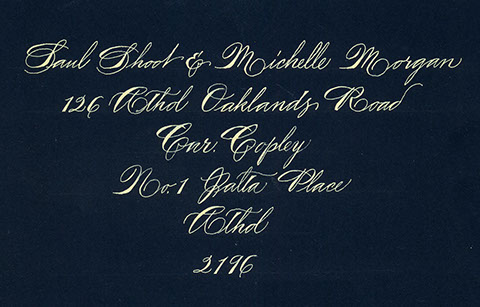 Saul Shoot & Michelle Morgan
126 Athol Oaklands Road
Cnr. Copley
No. 1 Place
Athol
2196